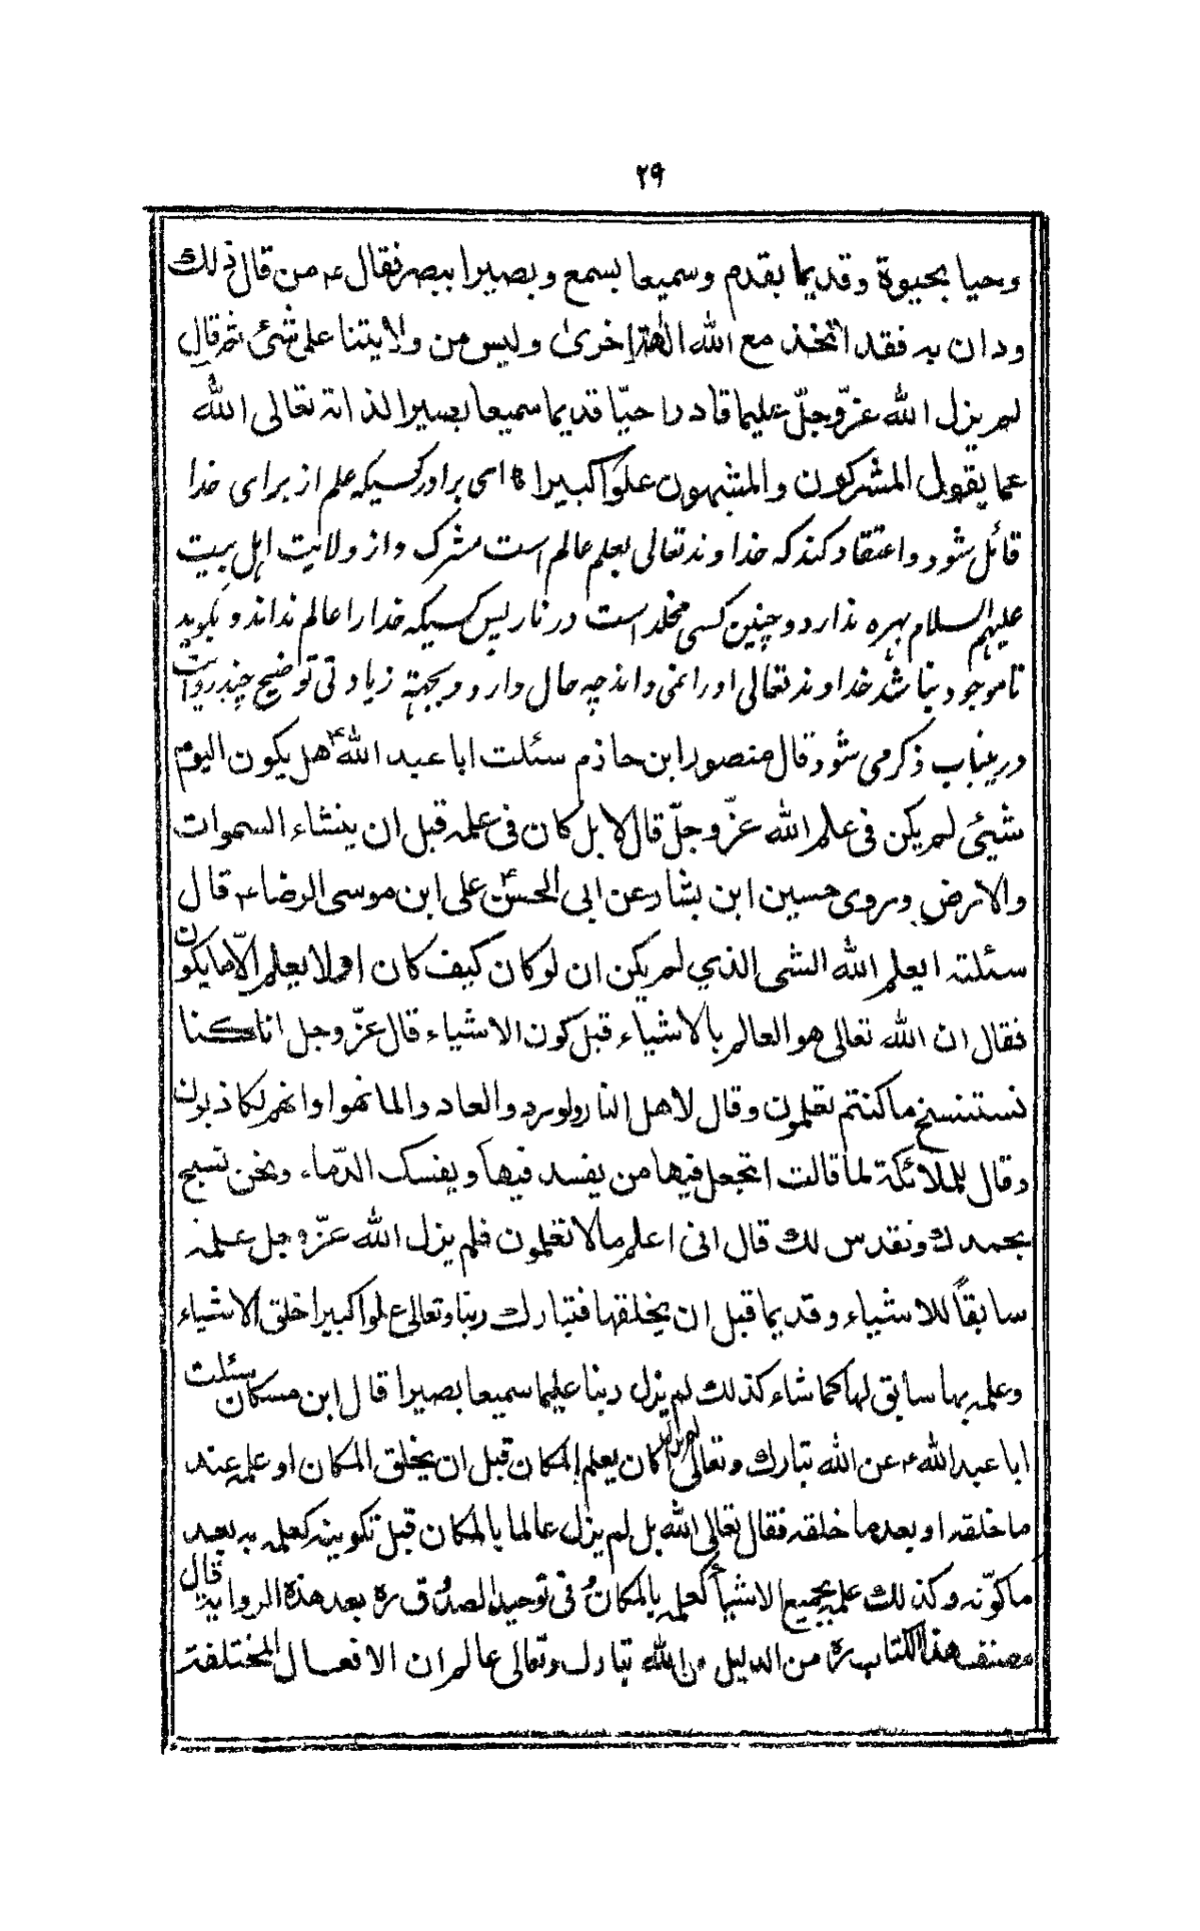 ۲۹
وحیا بحیوة وقدیما بقدم وسمیعا بسمع وبصیرا ببصر فقال ع من قال ذلك
ودان به فقد اتخذ مع الله الٰهة اخریٰ ولیس من ولایتنا علی شئ ثم قال
لم یزل الله عزّ وجلّ علیما قادرا حیّا قدیما سمیعا بصیرا لذاته تعالی الله
عما یقول المشرکون والمشبهون علوّا کبیرا ای برادر کسیکه علم از برای خدا
قائل شود واعتقاد کند که خداوند تعالی بعلم عالم است مشرک واز ولایت اهل بیت
علیهم السلام بهره ندارد وچنین کسی مخلد است در نار پس کسیکه خدا را عالم نداند و بگوید
تا موجود نباشد خداوند تعالی او را نمی داند چه حال دارد و بجهة زیادتی توضیح چند روایت
در ینباب ذکر می شود قال منصور ابن حاذم سئلت ابا عبد الله ع هل یکون الیوم
شیئی لم یکن فی علم الله عزّ وجلّ قال لا بل کان فی علمه قبل ان ینشاء السموات
والارض وروی حسین ابن بشار عن ابی الحسن ع علی ابن موسی الرضا ع قال
سئلته ایعلم الله الشی الذی لم یکن ان لو کان کیف کان او لا یعلم الّا ما یکون
فقال ان الله تعالی هو العالم بالاشیاء قبل کون الاشیاء قال عزّ وجل انا کنا
نستنسخ ما کنتم تعلمون وقال لاهل النار ولو ردوا لعادوا لما نهوا وانهم لکاذبون
وقال للملائکة لما قالت اتجعل فیها من یفسد فیها ویفسک الدّماء ونحن نسبح
بحمدك ونقدس لك قال انی اعلم ما لا تعلمون فلم یزل الله عزّ وجل علمه
سابقاً للاشیاء وقدیما قبل ان یخلقها فتبارك ربنا وتعالی علوا کبیرا خلق الاشیاء
وعلمه بها سابق لها کما شاء کذلك لم یزل ربنا علیما سمیعا بصیرا قال ابن مسکان سئلت
ابا عبد الله ع عن الله تبارك وتعالی کان یعلم المکان قبل ان یخلق المکان او علمه عند
ما خلقه او بعد ما خلقه فقال تعالی الله بل لم یزل عالما بالمکان قبل تکوینه کعلمه به بعد
ما کوّنه وکذلك علمه بجمیع الاشیاء کعلمه بالمکان و فی توحید الصدوق ره بعد هذه الروایة قال
مصنف هذا الکتاب ره من الدلیل الله تبارك وتعالی عالم ان الافعال المختلفة